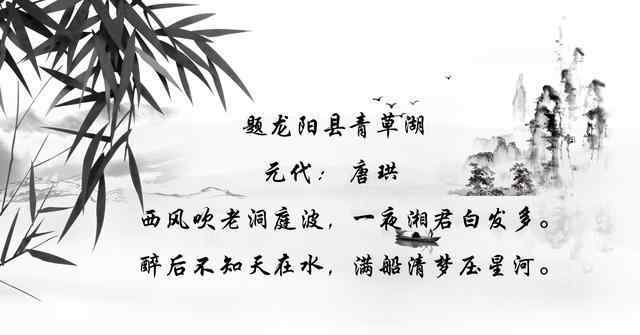 题龙阳县青草湖
元代：唐珙
西风吹老洞庭波，一夜湘君白发多。
醉后不知天在水，满船清梦压星河。